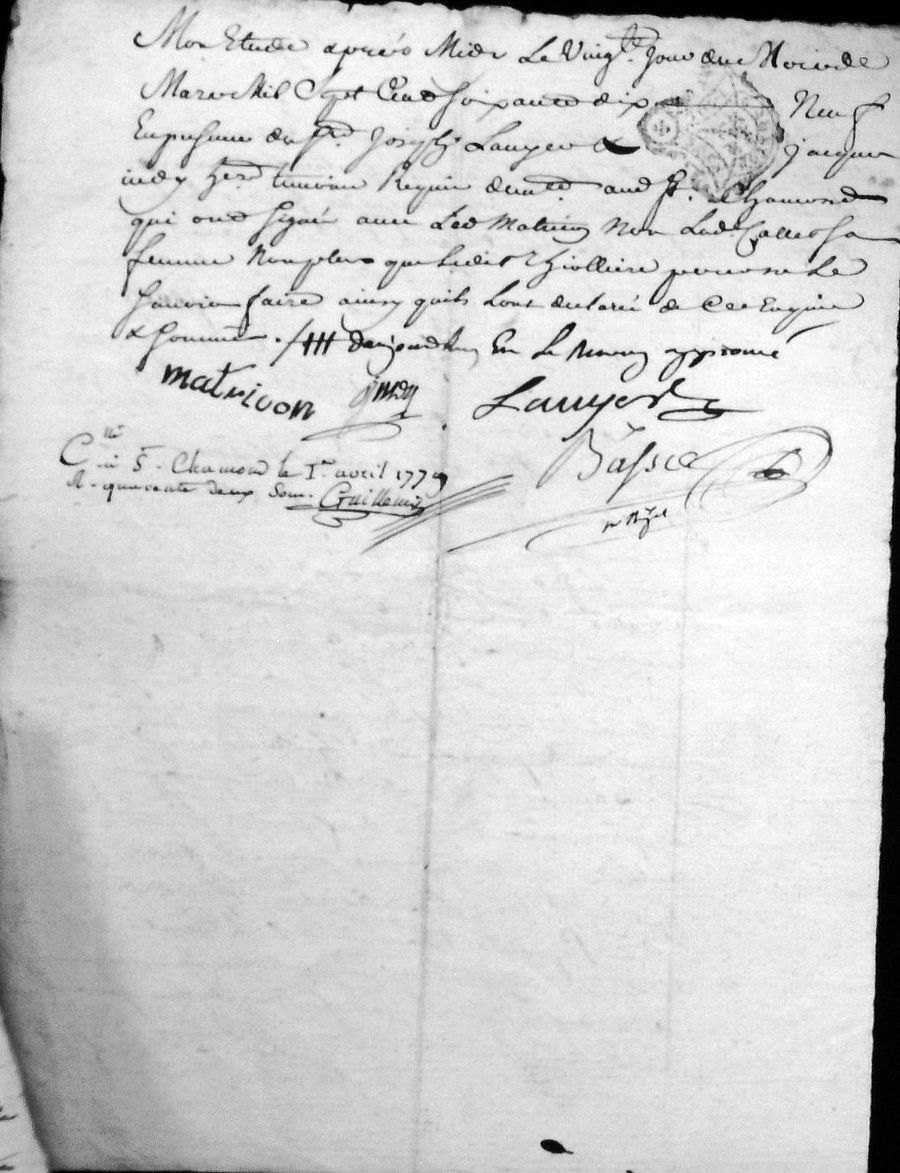 Mon Etude aprés Midy Le Vingt.e Jour du Mois de
Mars Mil Sept Cent Soixante dix Neuf
En presence de Sr. Joseph Lauyer & jacques
indy temoins Requis dem.t aud. St. Chamond
qui ont Signé avec Led Matricon Non Lad. Sa
femme Non plus que Ledit Thiolliere pour ne Le
Sçavoir faire ainsy qu'ils L'ont declaré de Ce Enquis
& Sommés ./ III daujourdhuy En Le approuvé
matricon indy Lauyer
C.lé à St. Chamond le 1er avril 1779
R. quarante deux Sous. Guillemin
Basse